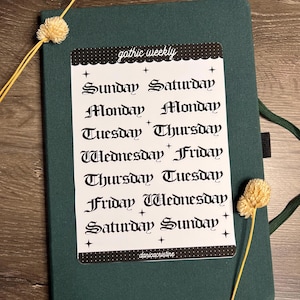 gothic weekly
Sunday Saturday
Monday Monday
Tuesday Thursday
Wednesday Friday
Thursday Tuesday
Friday Wednesday
Saturday Sunday